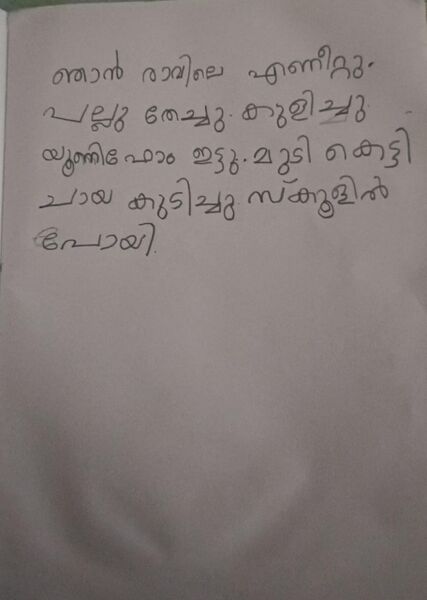 ഞാൻ രാവിലെ എണീറ്റു.
പല്ലു തേച്ചു. കുളിച്ചു
യൂണിഫോം ഇട്ടു. മുടി കെട്ടി
ചായ കുടിച്ചു സ്കൂളിൽ
പോയി.